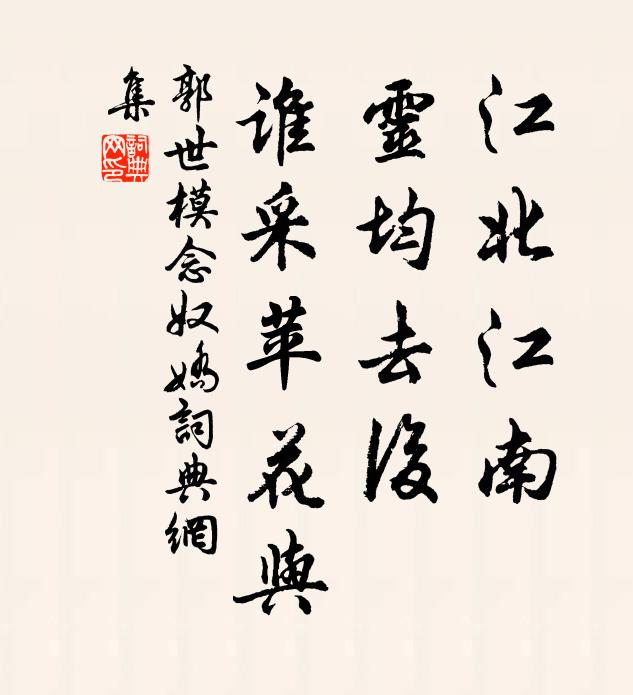 江北江南
靈均去後
誰采苹花與
郭世模念奴嬌詞典網
集
詞典網印